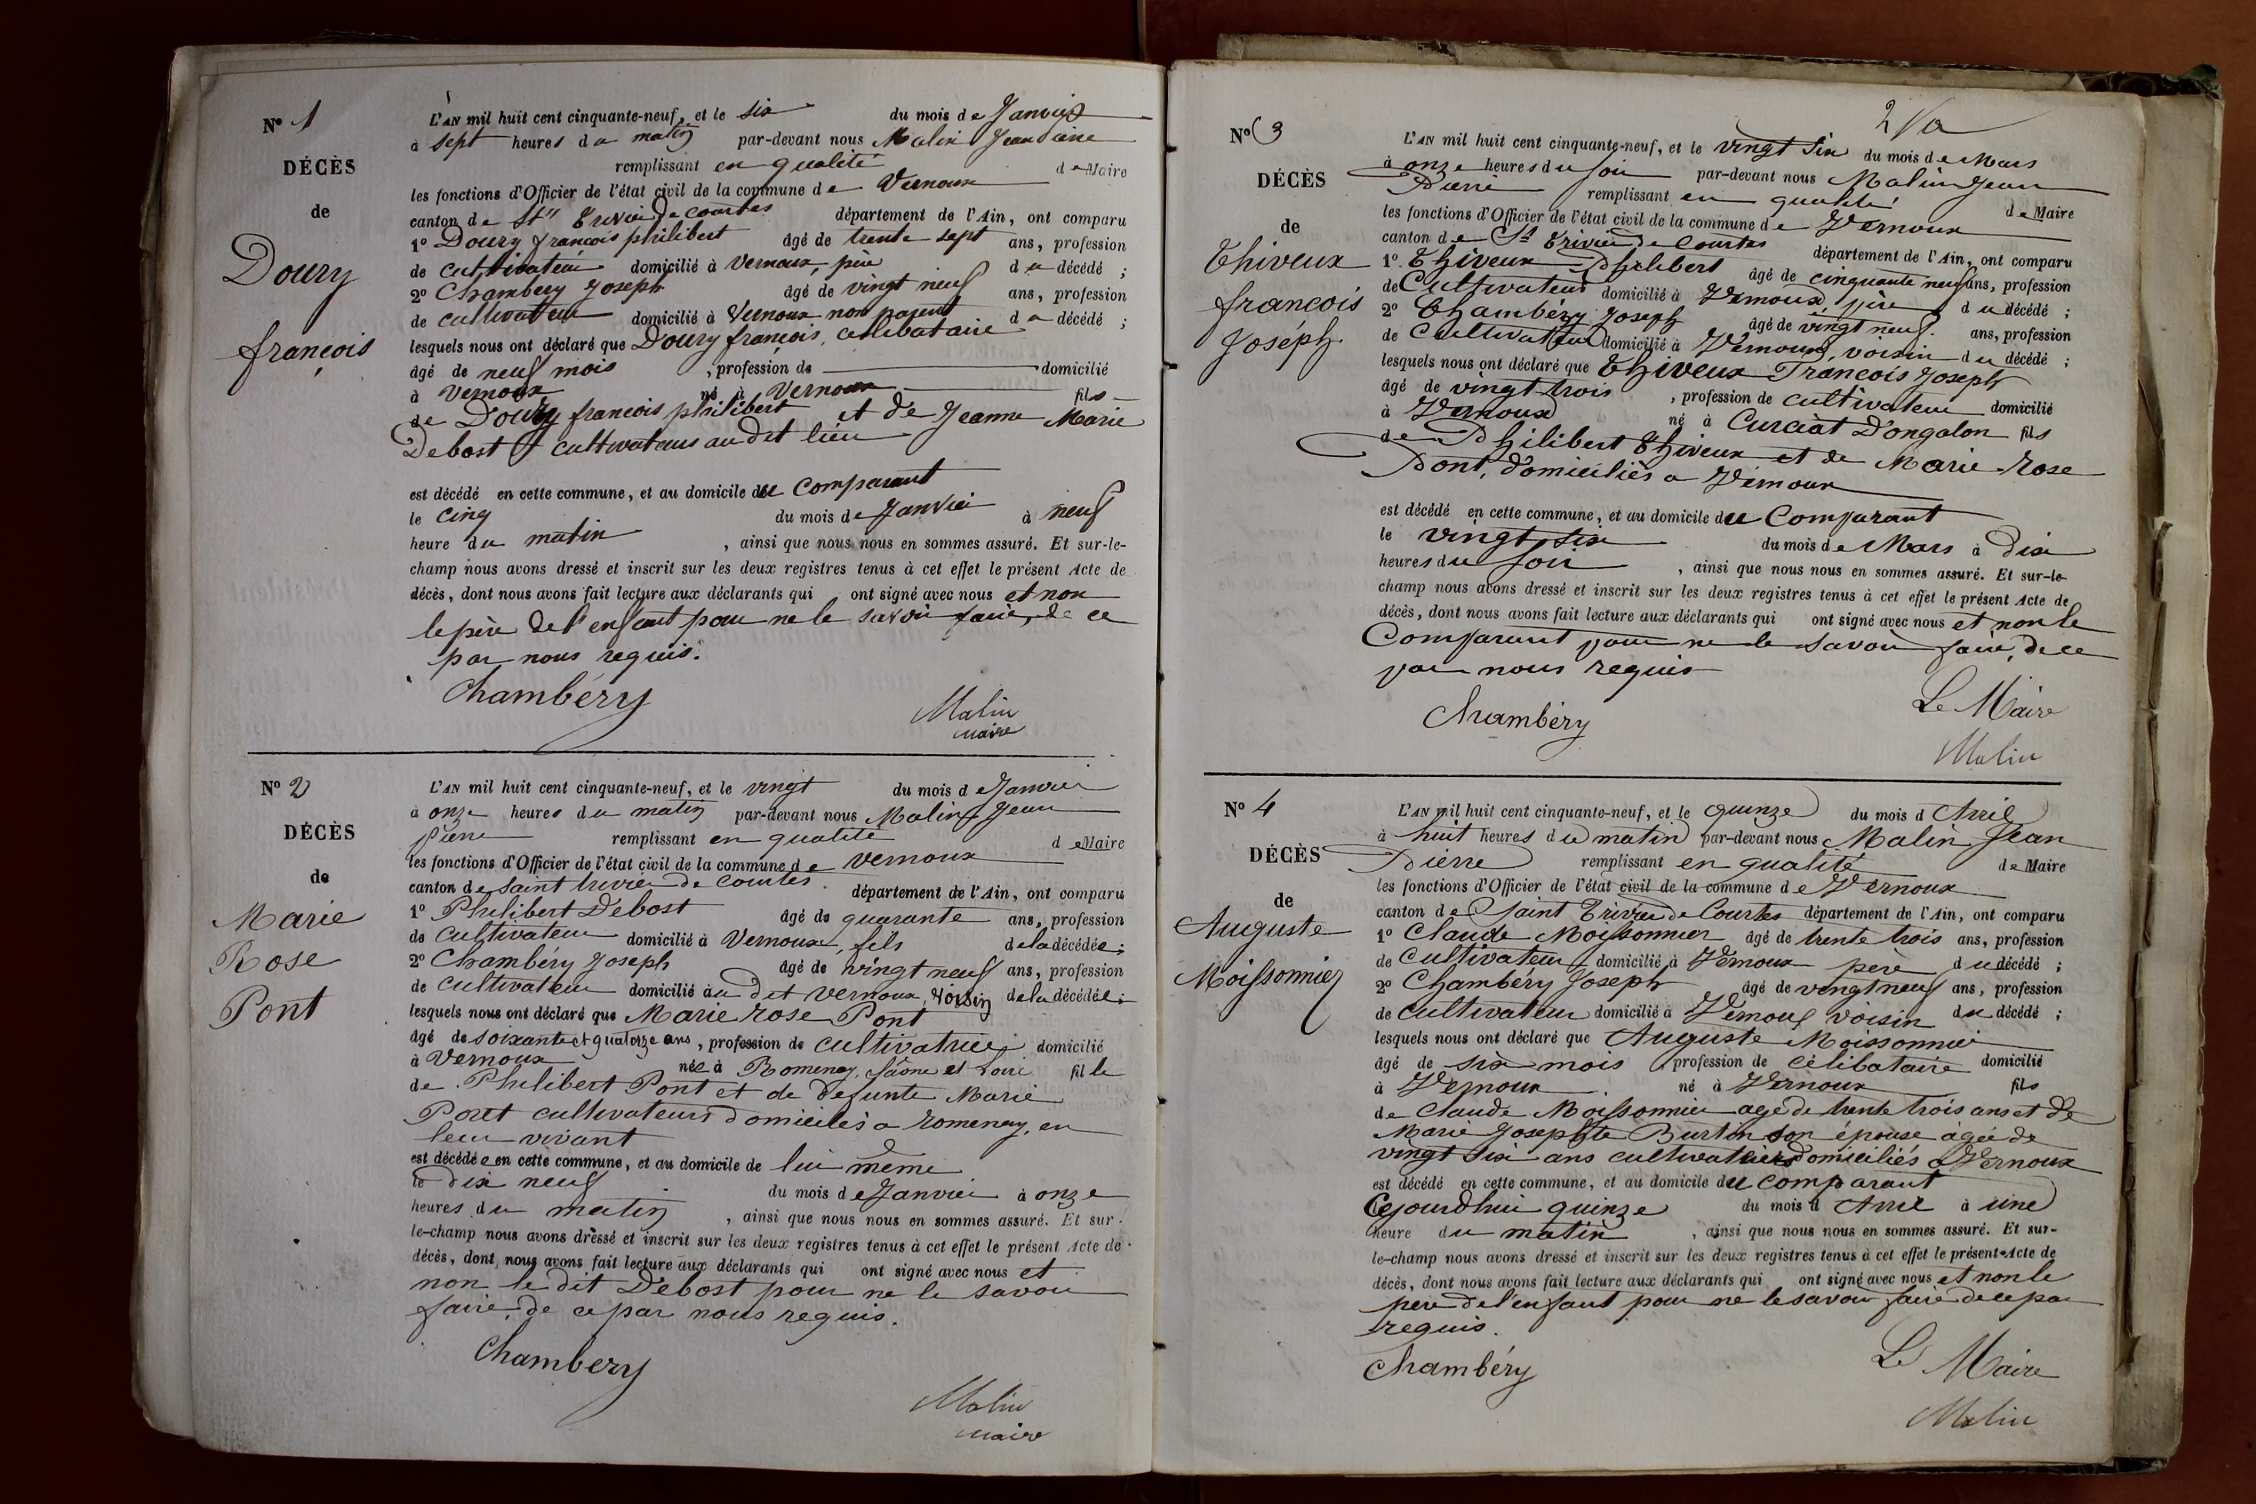 Nº 1
DÉCÈS
de
Doury
françois
L'AN mil huit cent cinquante-neuf, et le six du mois de Janvier
à sept heures du matin par-devant nous Malin Jean Pierre
remplissant en qualité de Maire
les fonctions d'Officier de l'état civil de la commune de Vernoux
canton de St Trivier de Courtes département de l'Ain, ont comparu
1º Doury françois philibert âgé de trente sept ans, profession
de cultivateur domicilié à Vernoux, père du décédé ;
2º Chambéry Joseph âgé de vingt neuf ans, profession
de cultivateur domicilié à Vernoux non parent du décédé ;
lesquels nous ont déclaré que Doury françois, célibataire
âgé de neuf mois , profession de domicilié
à Vernoux né à Vernoux fils
de Doury françois philibert et de Jeanne Marie
Debost cultivateurs au dit lieu
est décédé en cette commune, et au domicile du Comparant
le cinq du mois de Janvier à neuf
heure du matin , ainsi que nous nous en sommes assuré. Et sur-le-
champ nous avons dressé et inscrit sur les deux registres tenus à cet effet le présent Acte de
décès, dont nous avons fait lecture aux déclarants qui ont signé avec nous et non
le père de l'enfant pour ne le savoir faire, de ce
par nous requis.
Chambéry
Malin
maire
Nº 2
DÉCÈS
de
Marie
Rose
Pont
L'AN mil huit cent cinquante-neuf, et le vingt du mois de Janvier
à onze heures du matin par-devant nous Malin Jean
pierre remplissant en qualité de Maire
les fonctions d'Officier de l'état civil de la commune de Vernoux
canton de Saint trivier de Courtes département de l'Ain, ont comparu
1º Philibert Debost âgé de quarante ans, profession
de Cultivateur domicilié à Vernoux, fils de la décédée ;
2º Chambéry Joseph âgé de vingt neuf ans, profession
de Cultivateur domicilié au dit Vernoux, Voisin de la décédée ;
lesquels nous ont déclaré que Marie rose Pont
âgé de soixante et quatorze ans, profession de cultivatrice domicilié
à Vernoux née à Romenay, Saône et Loire fille
de Philibert Pont et de défunte Marie
Poret cultivateurs domiciliés à romenay, en
leur vivant
est décédée en cette commune, et au domicile de lui même
le dix neuf du mois de Janvier à onze
heures du matin , ainsi que nous nous en sommes assuré. Et sur-
le-champ nous avons dressé et inscrit sur les deux registres tenus à cet effet le présent Acte de
décès, dont nous avons fait lecture aux déclarants qui ont signé avec nous et
non le dit Debost pour ne le savoir
faire, de ce par nous requis.
Chambery
Malin
maire
Nº 3
DÉCÈS
de
Thiveux
françois
Joséph
L'AN mil huit cent cinquante-neuf, et le vingt six du mois de Mars
à onze heures du soir par-devant nous Malin Jean
Pierre remplissant en qualité de Maire
les fonctions d'Officier de l'état civil de la commune de Vernoux
canton de St Trivier de Courtes département de l'Ain, ont comparu
1º Thiveux Philibert âgé de cinquante neuf ans, profession
de Cultivateur domicilié à Vernoux père du décédé ;
2º Chambéry Joseph âgé de vingt neuf ans, profession
de Cultivateur domicilié à Vernoux, voisin du décédé ;
lesquels nous ont déclaré que Thiveux François Joseph
âgé de vingt trois , profession de cultivateur domicilié
à Vernoux né à Curciat D'ongalon fils
de Philibert Thiveux et de Marie-Rose
Pont, domiciliés à Vernoux
est décédé en cette commune, et au domicile du Comparant
le vingt six du mois de Mars à Dix
heures du soir , ainsi que nous nous en sommes assuré. Et sur-le-
champ nous avons dressé et inscrit sur les deux registres tenus à cet effet le présent Acte de
décès, dont nous avons fait lecture aux déclarants qui ont signé avec nous et non le
Comparant pour ne le savoir faire, de ce
par nous requis
Chambéry
Le Maire
Malin
Nº 4
DÉCÈS
de
Auguste
Moissonnier
L'AN mil huit cent cinquante-neuf, et le quinze du mois d Avril
à huit heures du matin par-devant nous Malin Jean
Pierre remplissant en qualité de Maire
les fonctions d'Officier de l'état civil de la commune de Vernoux
canton de Saint Trivier de Courtes département de l'Ain, ont comparu
1º Claude Moissonnier âgé de trente trois ans, profession
de Cultivateur domicilié à Vernoux père du décédé ;
2º Chambéry Joseph âgé de vingt neuf ans, profession
de cultivateur domicilié à Vernoux voisin du décédé ;
lesquels nous ont déclaré que Auguste Moissonnier
âgé de six mois profession de célibataire domicilié
à Vernoux né à Vernoux fils
de Claude Moissonnier agé de trente trois ans et de
Marie Josephte Burtin son épouse âgée de
vingt six ans cultivateurs domiciliés à Vernoux
est décédé en cette commune, et au domicile du comparant
Cejourdhui quinze du mois d Avril à une
heure du matin , ainsi que nous nous en sommes assuré. Et sur-
le-champ nous avons dressé et inscrit sur les deux registres tenus à cet effet le présent Acte de
décès, dont nous avons fait lecture aux déclarants qui ont signé avec nous et non le
père de l'enfant pour ne le savoir faire de ce par
requis.
Chambéry
Le Maire
Malin